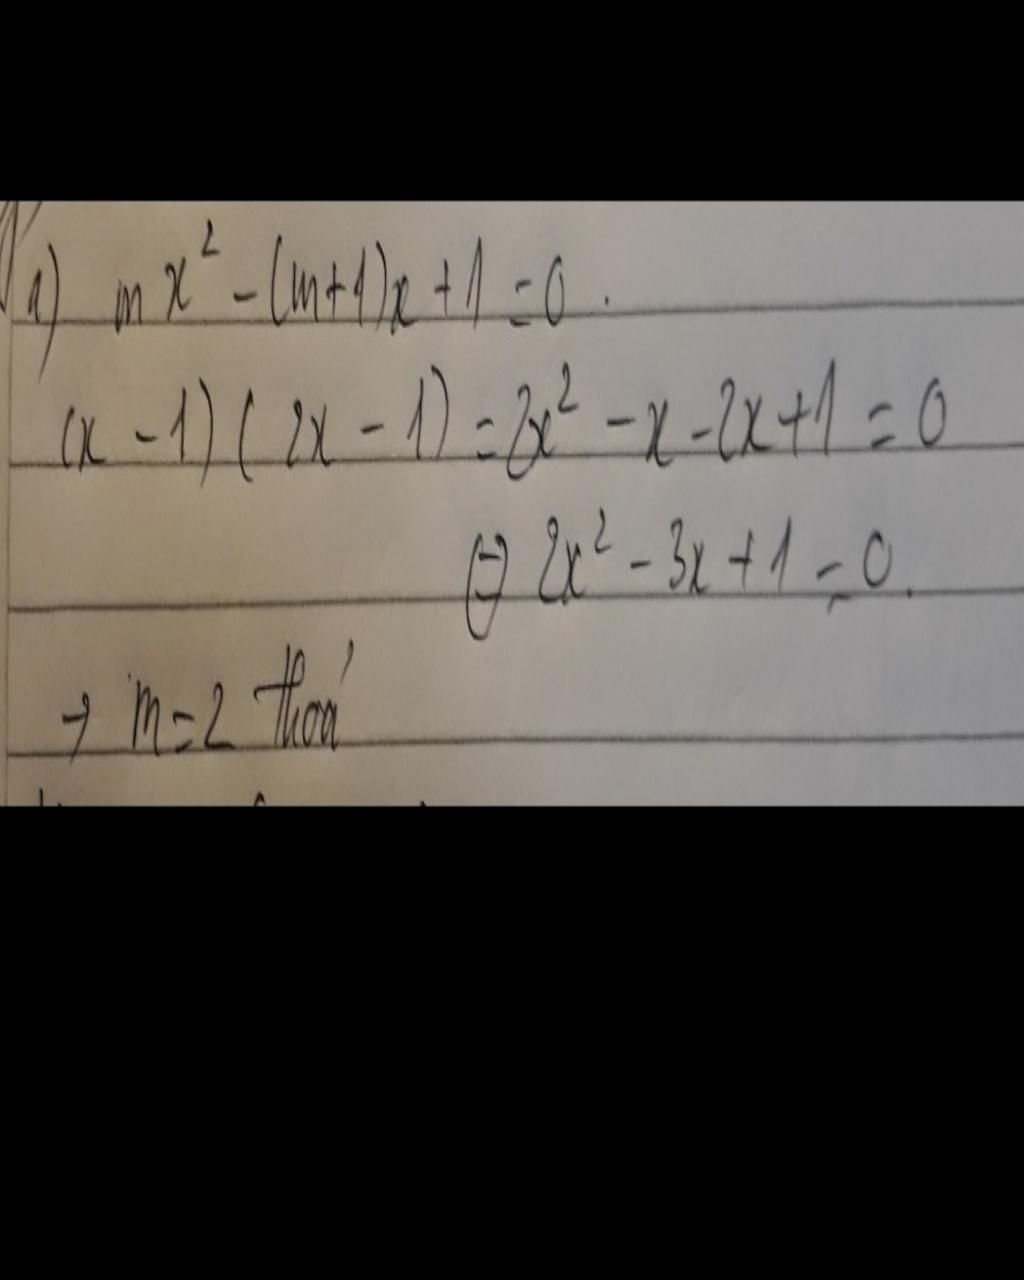 1) mx² - (m+1)x + 1 = 0.
(x - 1)(2x - 1) = 2x² - x - 2x + 1 = 0
⇔ 2x² - 3x + 1 = 0.
→ m = 2 thoả